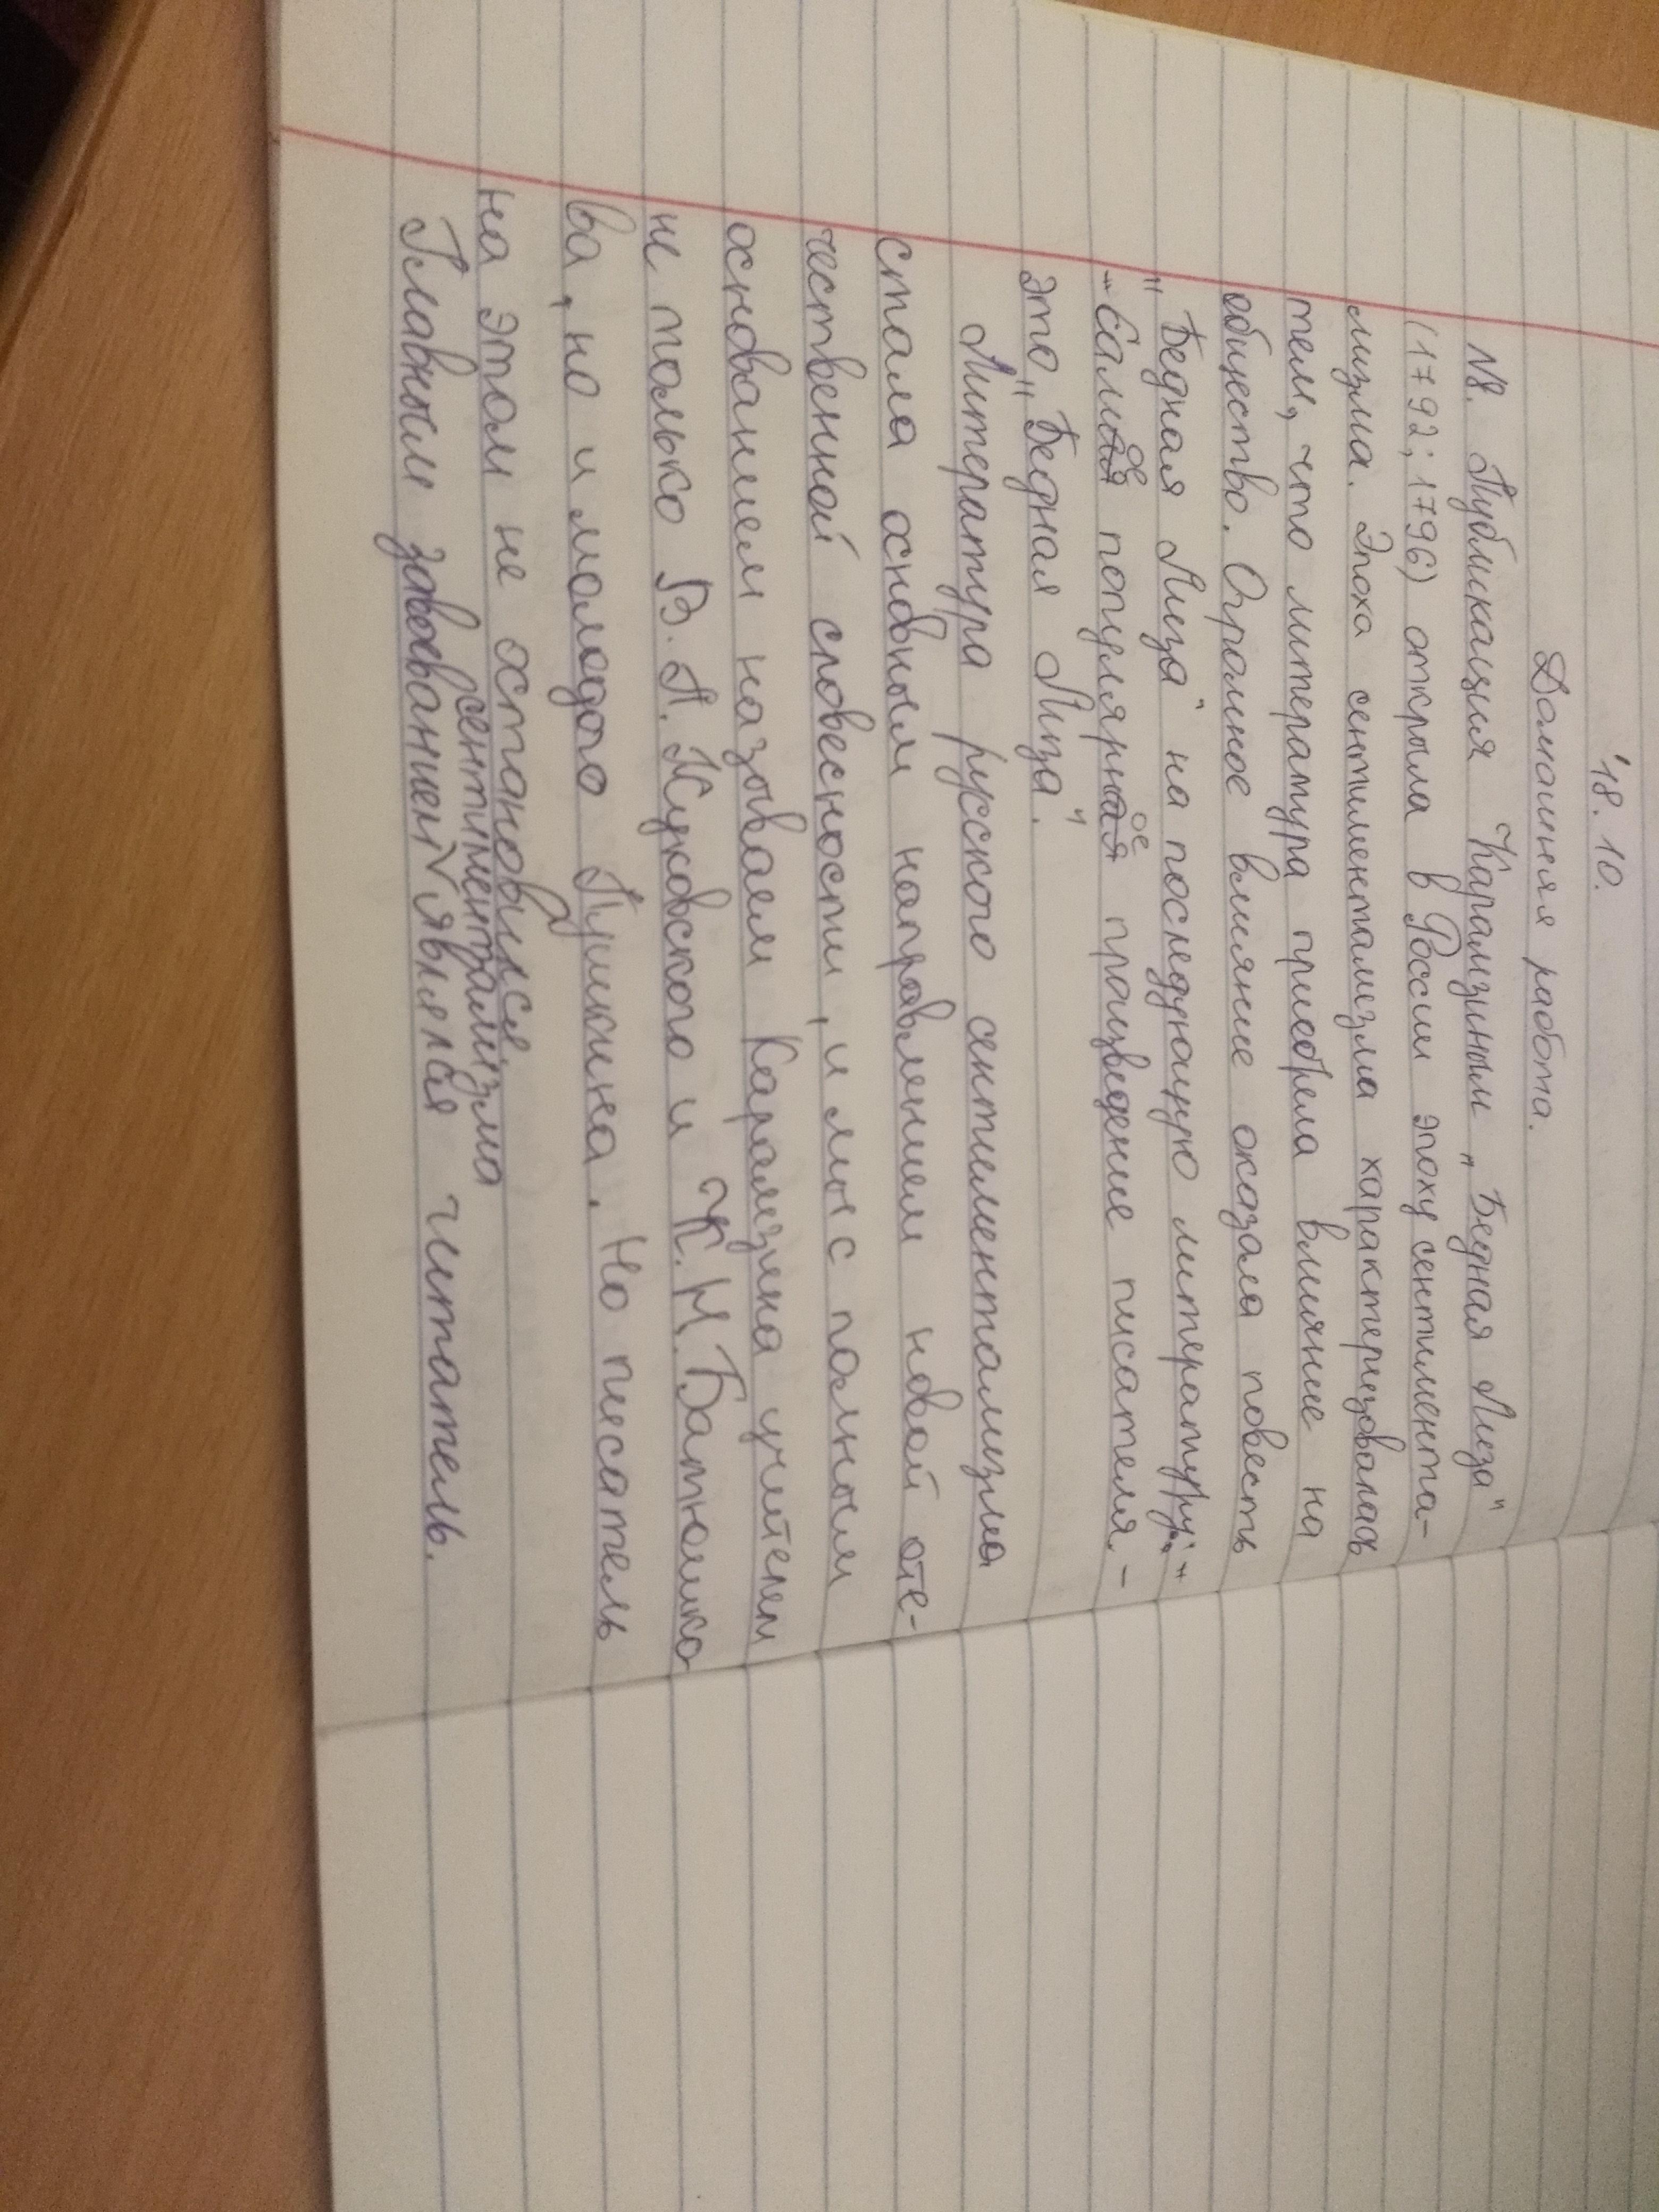 18. 10.
Домашняя работа.
N8. Публикация Карамзиным „Бедная Лиза“
(1792; 1796) открыла в России эпоху сентимента-
лизма. Эпоха сентиментализма характеризовалась
тем, что литература приобрела влияние на
общество. Огромное влияние оказала повесть
„Бедная Лиза“ на последующую литературу.
Самое популярное произведение писателя –
это „Бедная Лиза“.
Литература русского сентиментализма
стала основным направлением новой оте-
чественной словесности, и мы с полным
основанием называем Карамзина учителем
не только В. А. Жуковского и К. Н. Батюшко
ва, но и молодого Пушкина. Но писатель
на этом не остановился.
сентиментрализма
Главным завоеванием является читатель.